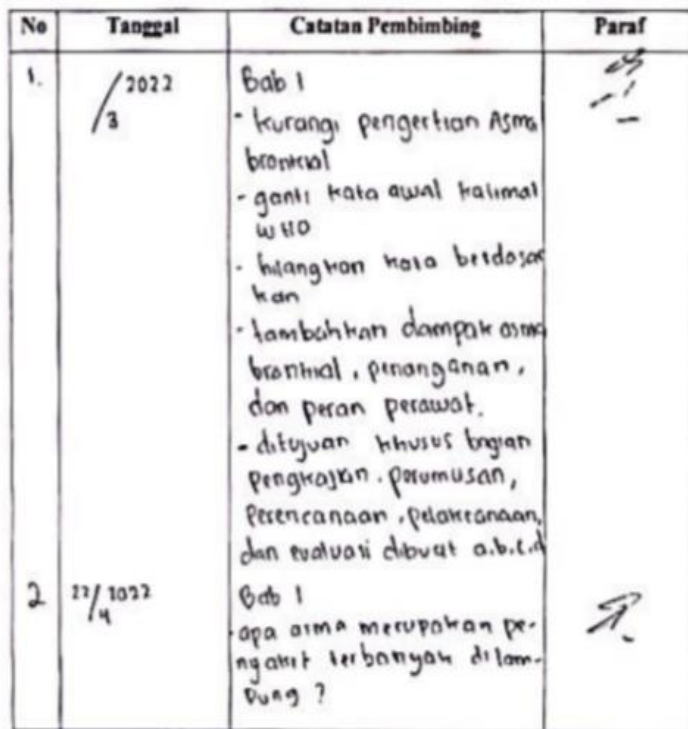 No Tanggal Catatan Pembimbing Paraf
1. /2022 Bab 1
/3 - kurangi pengertian Asma
bronkial
- ganti kata awal kalimat
WHO
- hilangkan kata berdasar
kan
- tambahkan dampak asma
bronkial, penanganan,
dan peran perawat.
- ditujuan khusus bagian
pengkajian. perumusan,
perencanaan, pelaksanaan,
dan evaluasi dibuat a.b.c.d
2 22/2022 Bab 1
/4 - apa asma merupakan pe-
nyakit terbanyak dilam-
pung ?